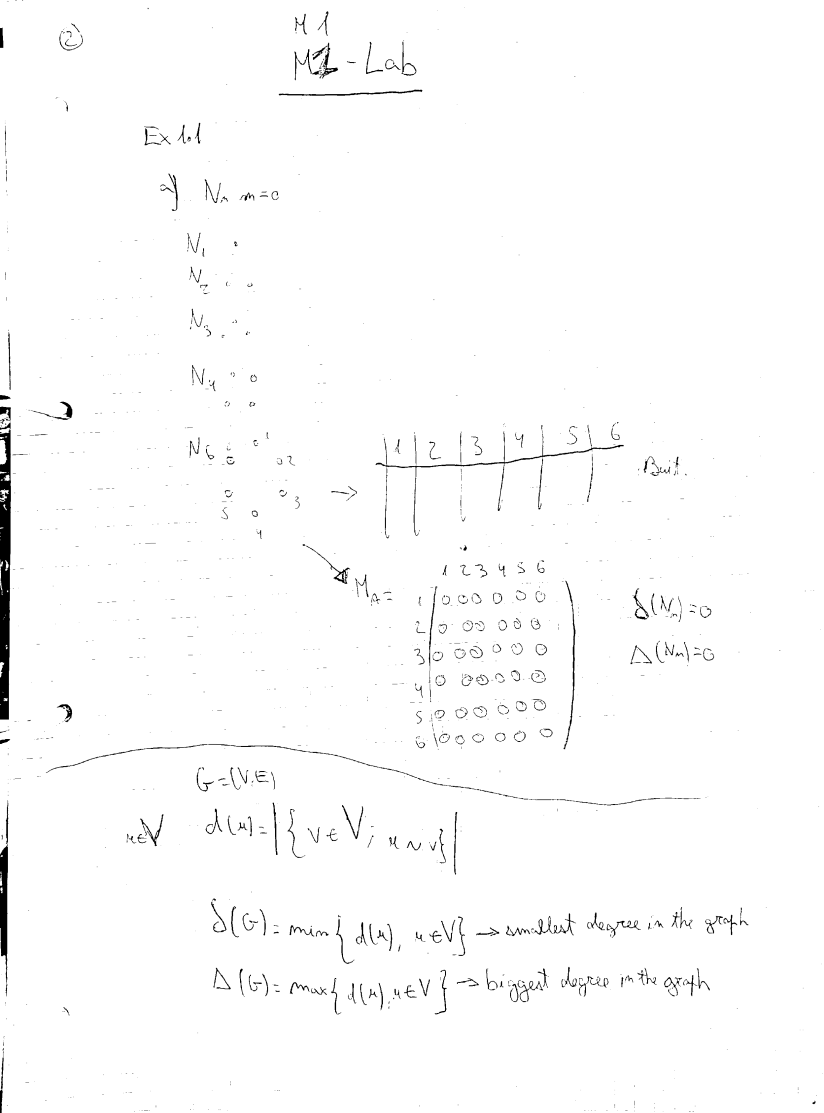 ②
M1
M1 - Lab
Ex 1.1
a) Nn m=0
N1
N2
N3
N4
N6 6 1 2
5 3
4
→ 1 2 3 4 5 6
1 2 3 4 5 6
MA =
1 0 0 0 0 0 0
2 0 0 0 0 0 0
3 0 0 0 0 0 0
4 0 0 0 0 0 0
5 0 0 0 0 0 0
6 0 0 0 0 0 0
δ(Nn)=0
Δ(Nn)=0
G=(V,E)
u∈V d(u)=|{v∈V; u~v}|
δ(G)=min{d(u), u∈V} → smallest degree in the graph
Δ(G)=max{d(u), u∈V} → biggest degree in the graph